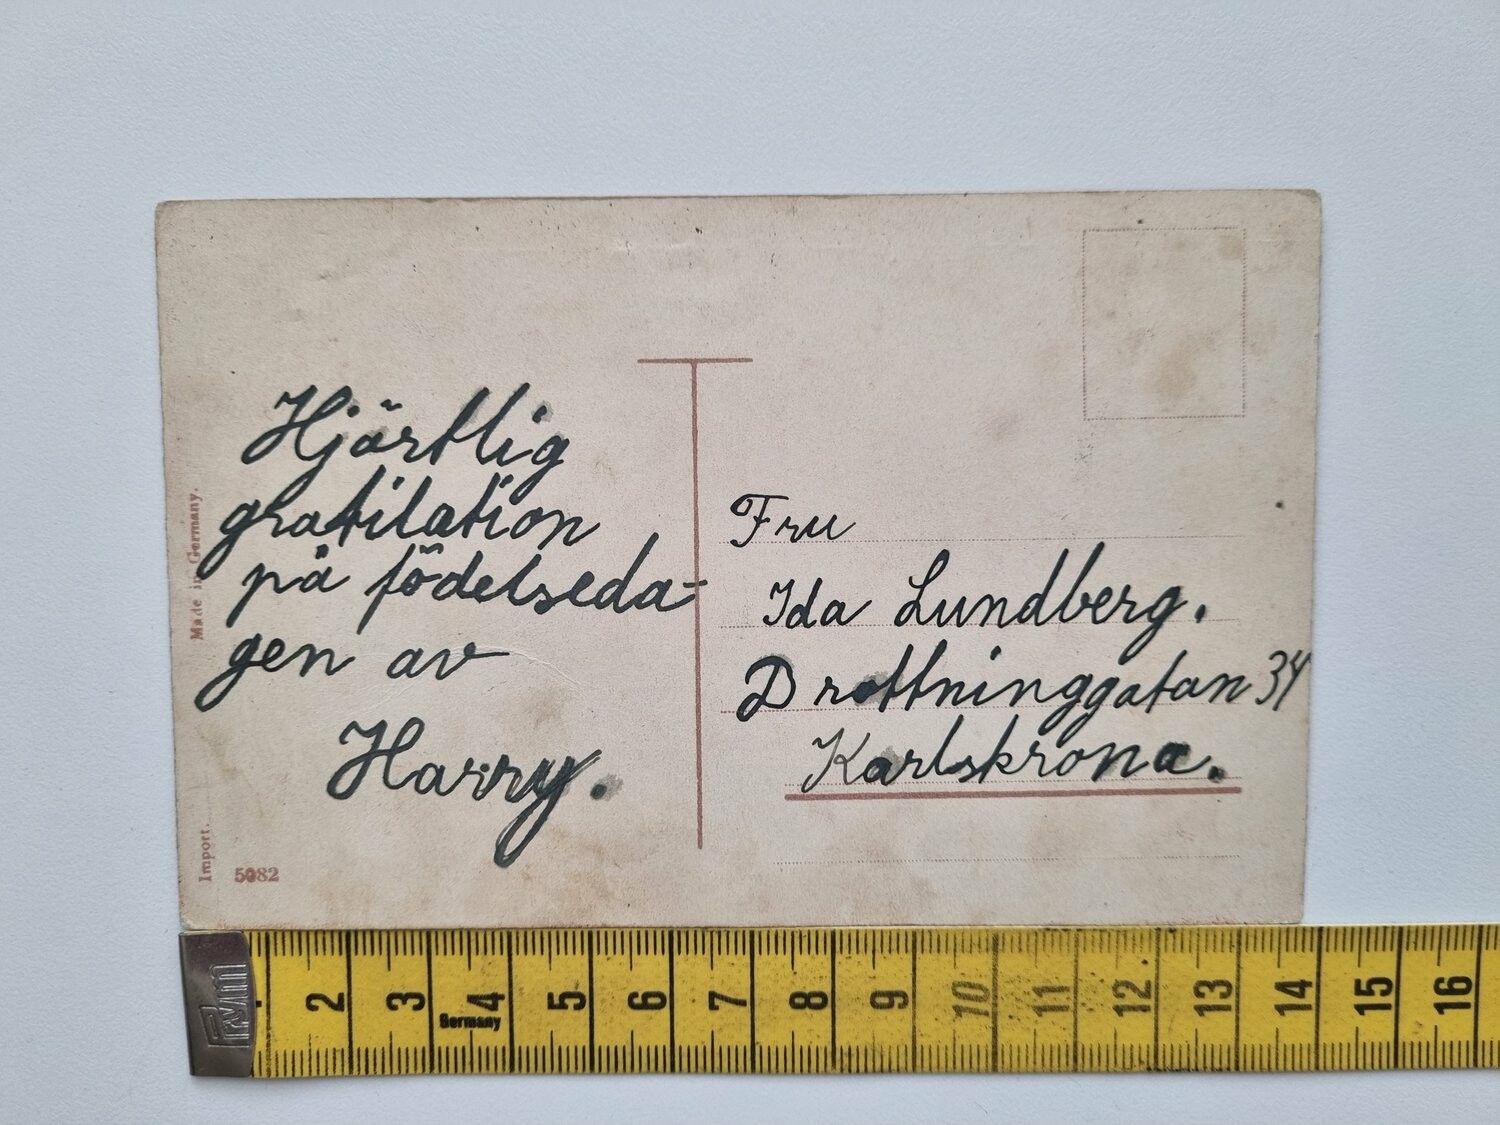 Hjärtlig
gratilation
på födelseda-
gen av
Harry.
Fru
Ida Lundberg.
Drottninggatan 34
Karlskrona.
Made in Germany.
Import.
5082
Prym
2 3 4 5 6 7 8 9 10 11 12 13 14 15 16
Germany